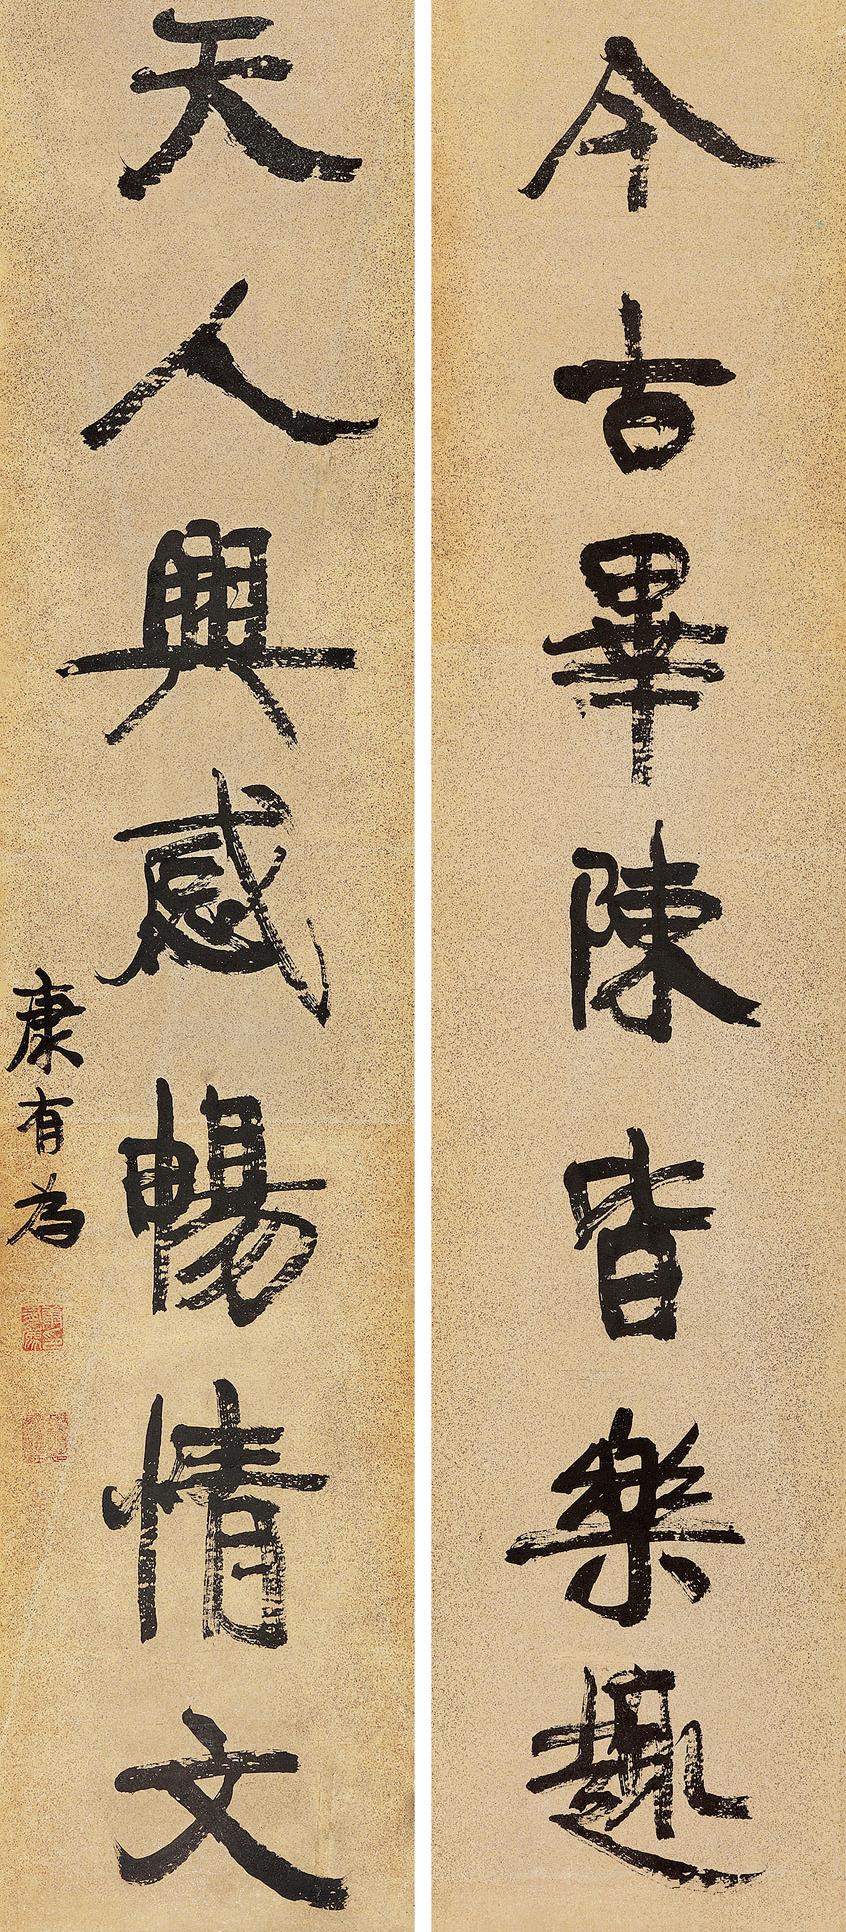 今古畢陳皆樂趣
天人興感暢情文
康有為